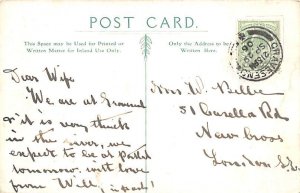 POST CARD.
This Space may be Used for Printed or
Written Matter for Inland Use Only.
Only the Address to be
Written Here.
GRAVESEND
Dear Wife
We are at Gravesend
& it is very thick
in the river, we
expect to be at
tomorrow, with love
from Will,
Mrs W.
51 Casella Rd
New Cross
London S.E.